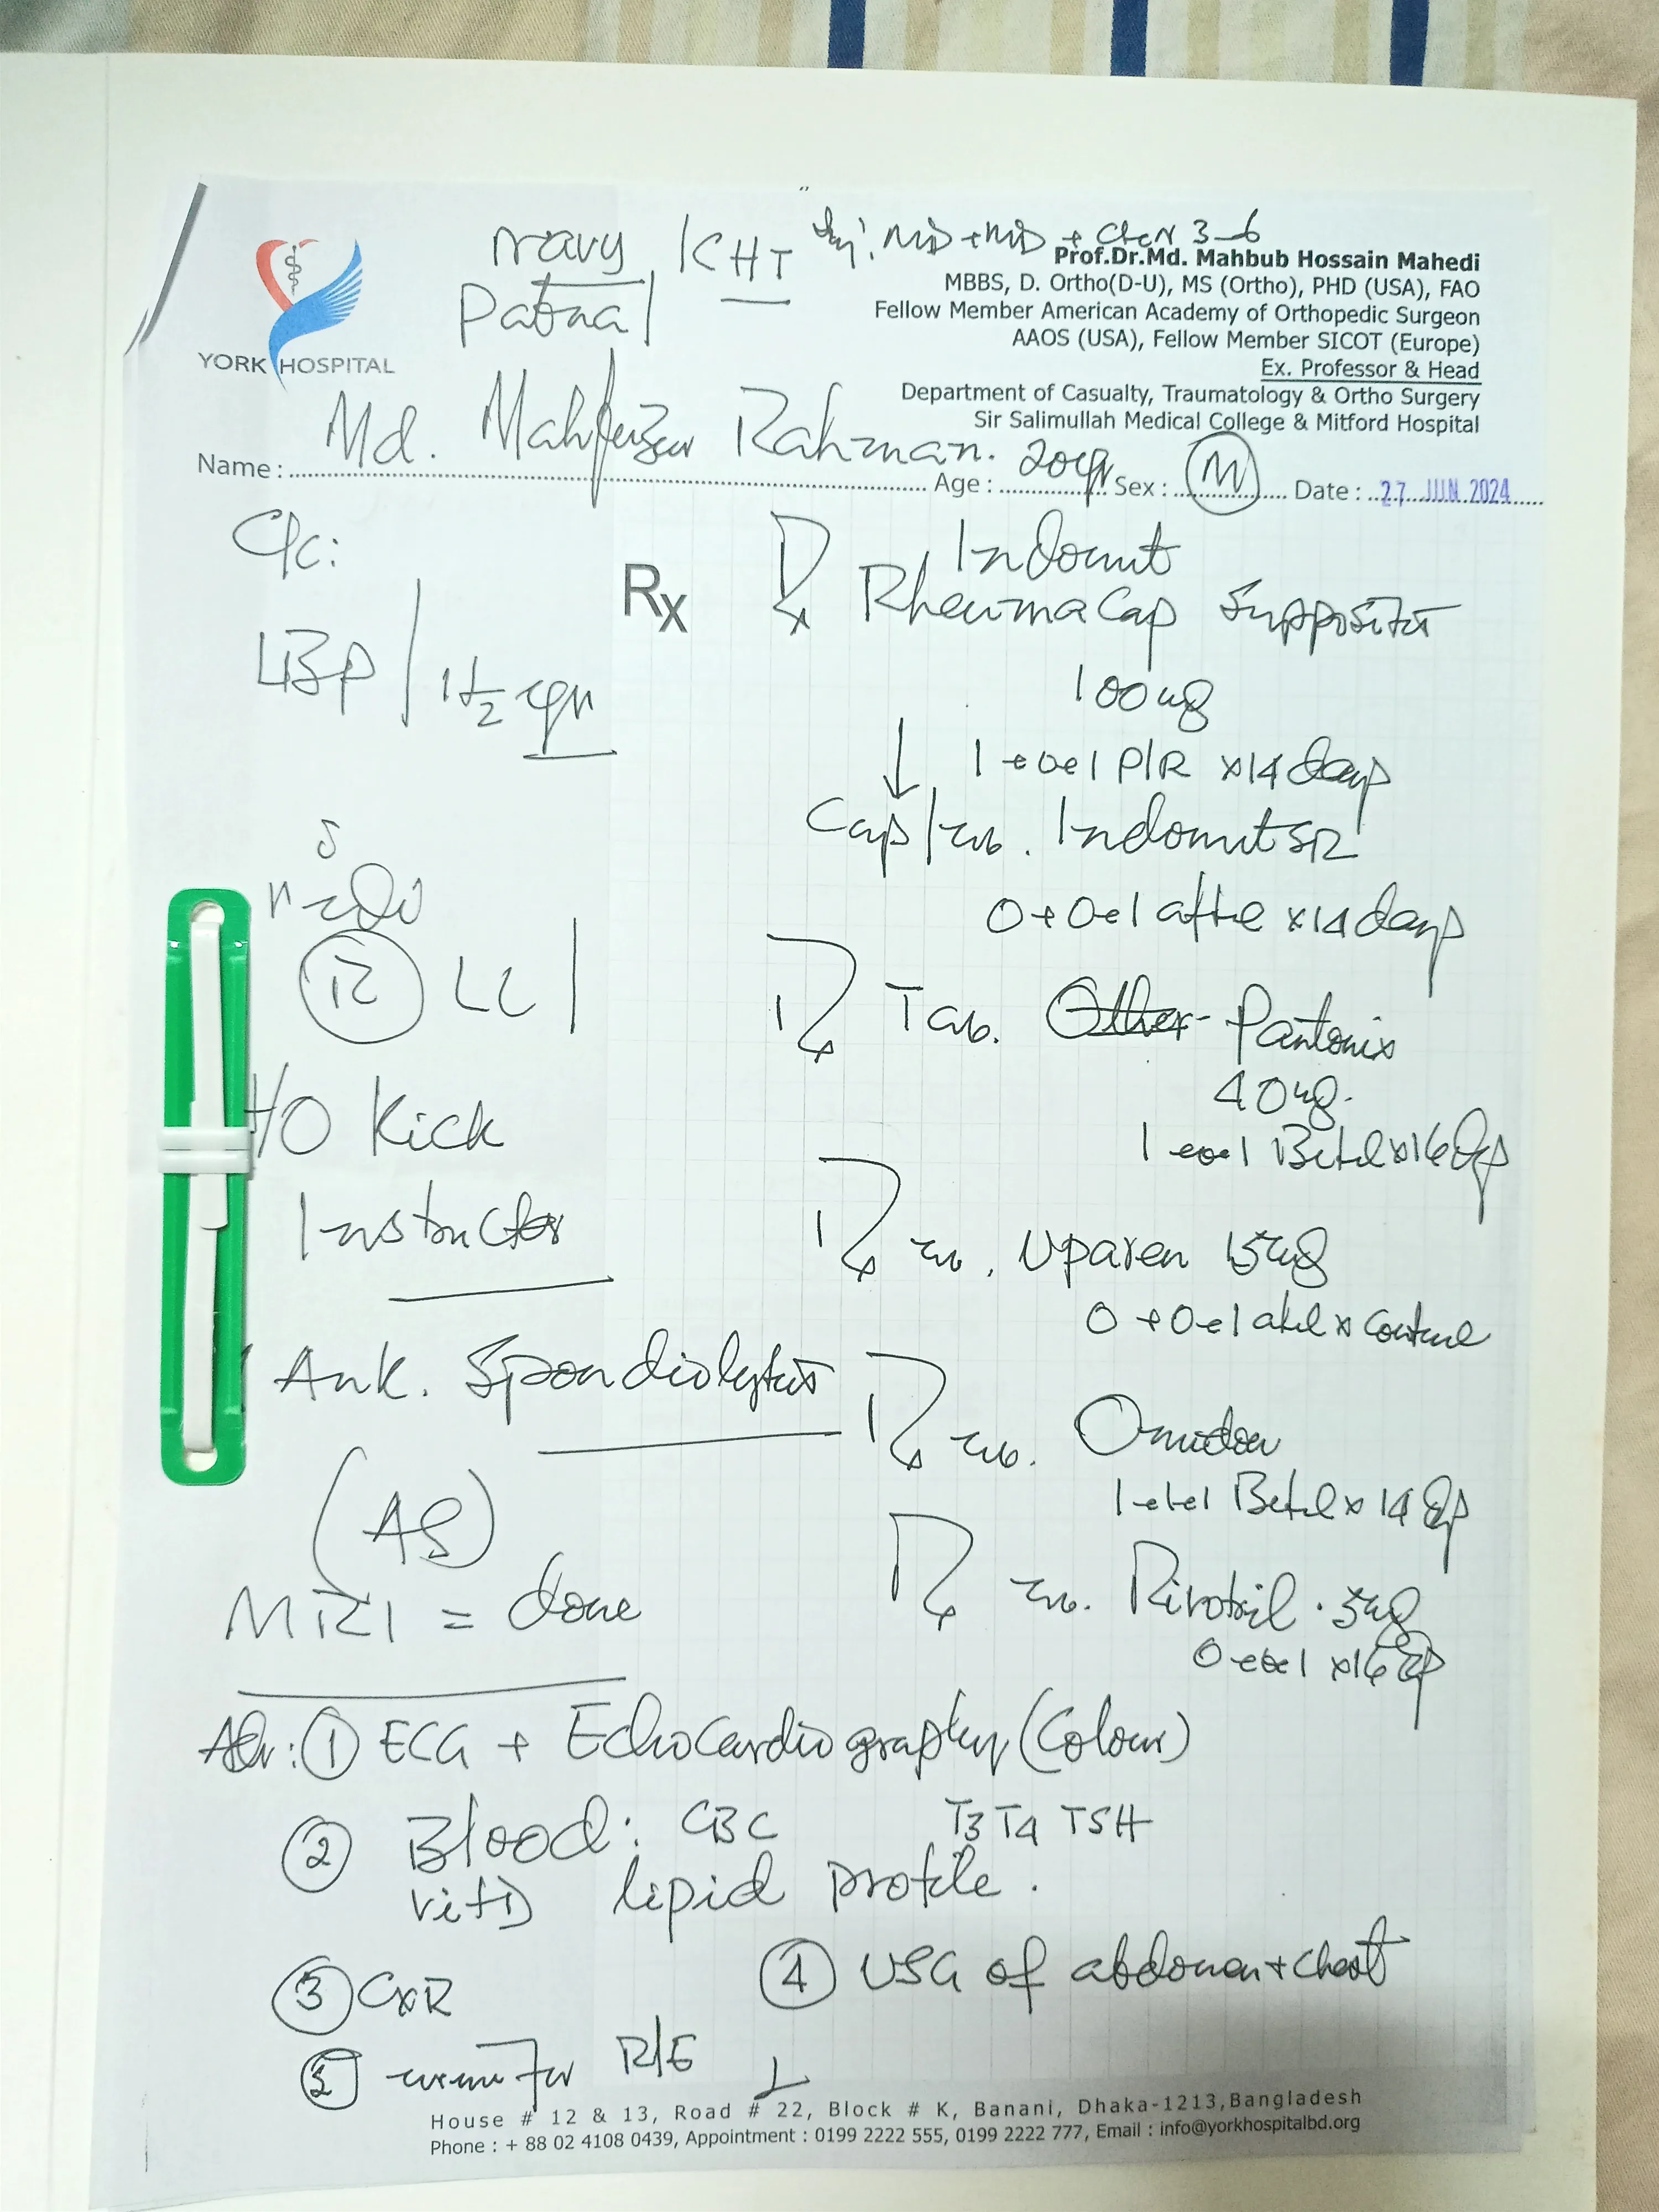 Navy KHT
Pabna
YORK HOSPITAL
Prof.Dr.Md. Mahbub Hossain Mahedi
MBBS, D. Ortho(D-U), MS (Ortho), PHD (USA), FAO
Fellow Member American Academy of Orthopedic Surgeon
AAOS (USA), Fellow Member SICOT (Europe)
Ex. Professor & Head
Department of Casualty, Traumatology & Ortho Surgery
Sir Salimullah Medical College & Mitford Hospital
Name : Md. Mahfuzur Rahman. Age : 20yr Sex : M Date : 27 JUN 2024
C/c:
LBP / 1 1/2 yr
R LL
H/O Kick
Instructor
Ank. Spondiolytis
(AS)
MRI = done
Rx
Rx Indomet
Rheumacap Suppository
100mg
1+0+1 P/R x14 days
↓
Cap/Tab. Indomet SR
0+0+1 after x14 days
Rx Tab. Pantonix
40mg.
1+0+1
Rx Tab. Uparen 15mg
0+0+1
Rx Tab. Omidon
1+1+1
Rx Tab. Rivotril .5mg
0+0+1
Adv: ① ECG + Echocardiography (Colour)
② Blood: CBC T3 T4 TSH
Vit D lipid profile.
③ CXR ④ USG of abdomen + chest
⑤ R/E
House # 12 & 13, Road # 22, Block # K, Banani, Dhaka-1213,Bangladesh
Phone : + 88 02 4108 0439, Appointment : 0199 2222 555, 0199 2222 777, Email : info@yorkhospitalbd.org